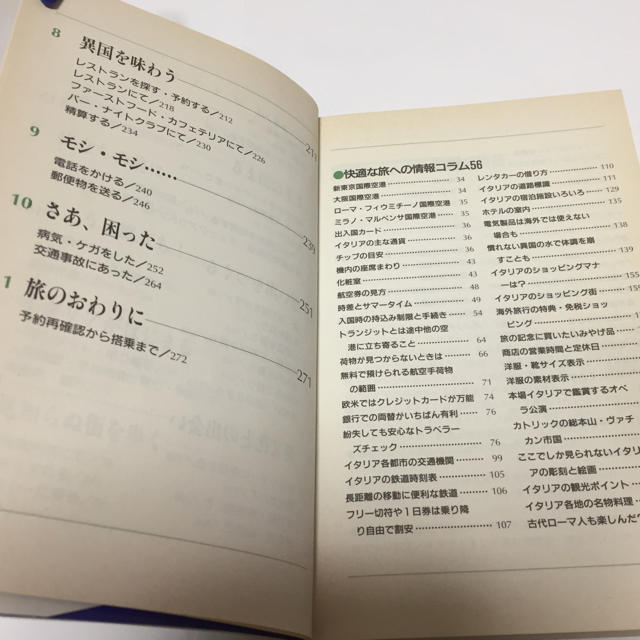 8
異国を味わう 211
レストランを探す・予約する/212
レストランにて/218
ファーストフード・カフェテリアにて/226
バー・ナイトクラブにて/230
精算する/234
9
モシ・モシ…… 239
電話をかける/240
郵便物を送る/246
10
さあ、困った 251
病気・ケガをした/252
交通事故にあった/264
1
旅のおわりに 271
予約再確認から搭乗まで/272
●快適な旅への情報コラム56
新東京国際空港 34
大阪国際空港 34
ローマ・フィウミチーノ国際空港 35
ミラノ・マルペンサ国際空港 35
出入国カード 36
イタリアの主な通貨 36
チップの目安 36
機内の座席まわり 43
化粧室 43
航空券の見方 48
時差とサマータイム 49
入国時の持込み制限と手続き 54
トランジットとは途中他の空
港に立ち寄ること 64
荷物が見つからないときは 66
無料で預けられる航空手荷物
の範囲 71
欧米ではクレジットカードが万能 74
銀行での両替がいちばん有利 76
紛失しても安心なトラベラー
ズチェック 76
イタリア各都市の交通機関 99
イタリアの鉄道時刻表 105
長距離の移動に便利な鉄道 106
フリー切符や1日券は乗り降
り自由で割安 107
レンタカーの借り方 110
イタリアの道路標識 111
イタリアの宿泊施設いろいろ 129
ホテルの室内 135
電気製品は海外では使えない
場合も 138
慣れない異国の水で体調を崩
すことも 139
イタリアのショッピングマナ
ーは? 155
イタリアのショッピング街 159
海外旅行の特典・免税ショッ
ピング
旅の記念に買いたいみやげ品
商店の営業時間と定休日
洋服・靴サイズ表示
洋服の素材表示
本場イタリアで鑑賞するオペ
ラ公演
カトリックの総本山・ヴァチ
カン市国
ここでしか見られないイタリ
アの彫刻と絵画
イタリアの観光ポイント
イタリア各地の名物料理
古代ローマ人も楽しんだ?